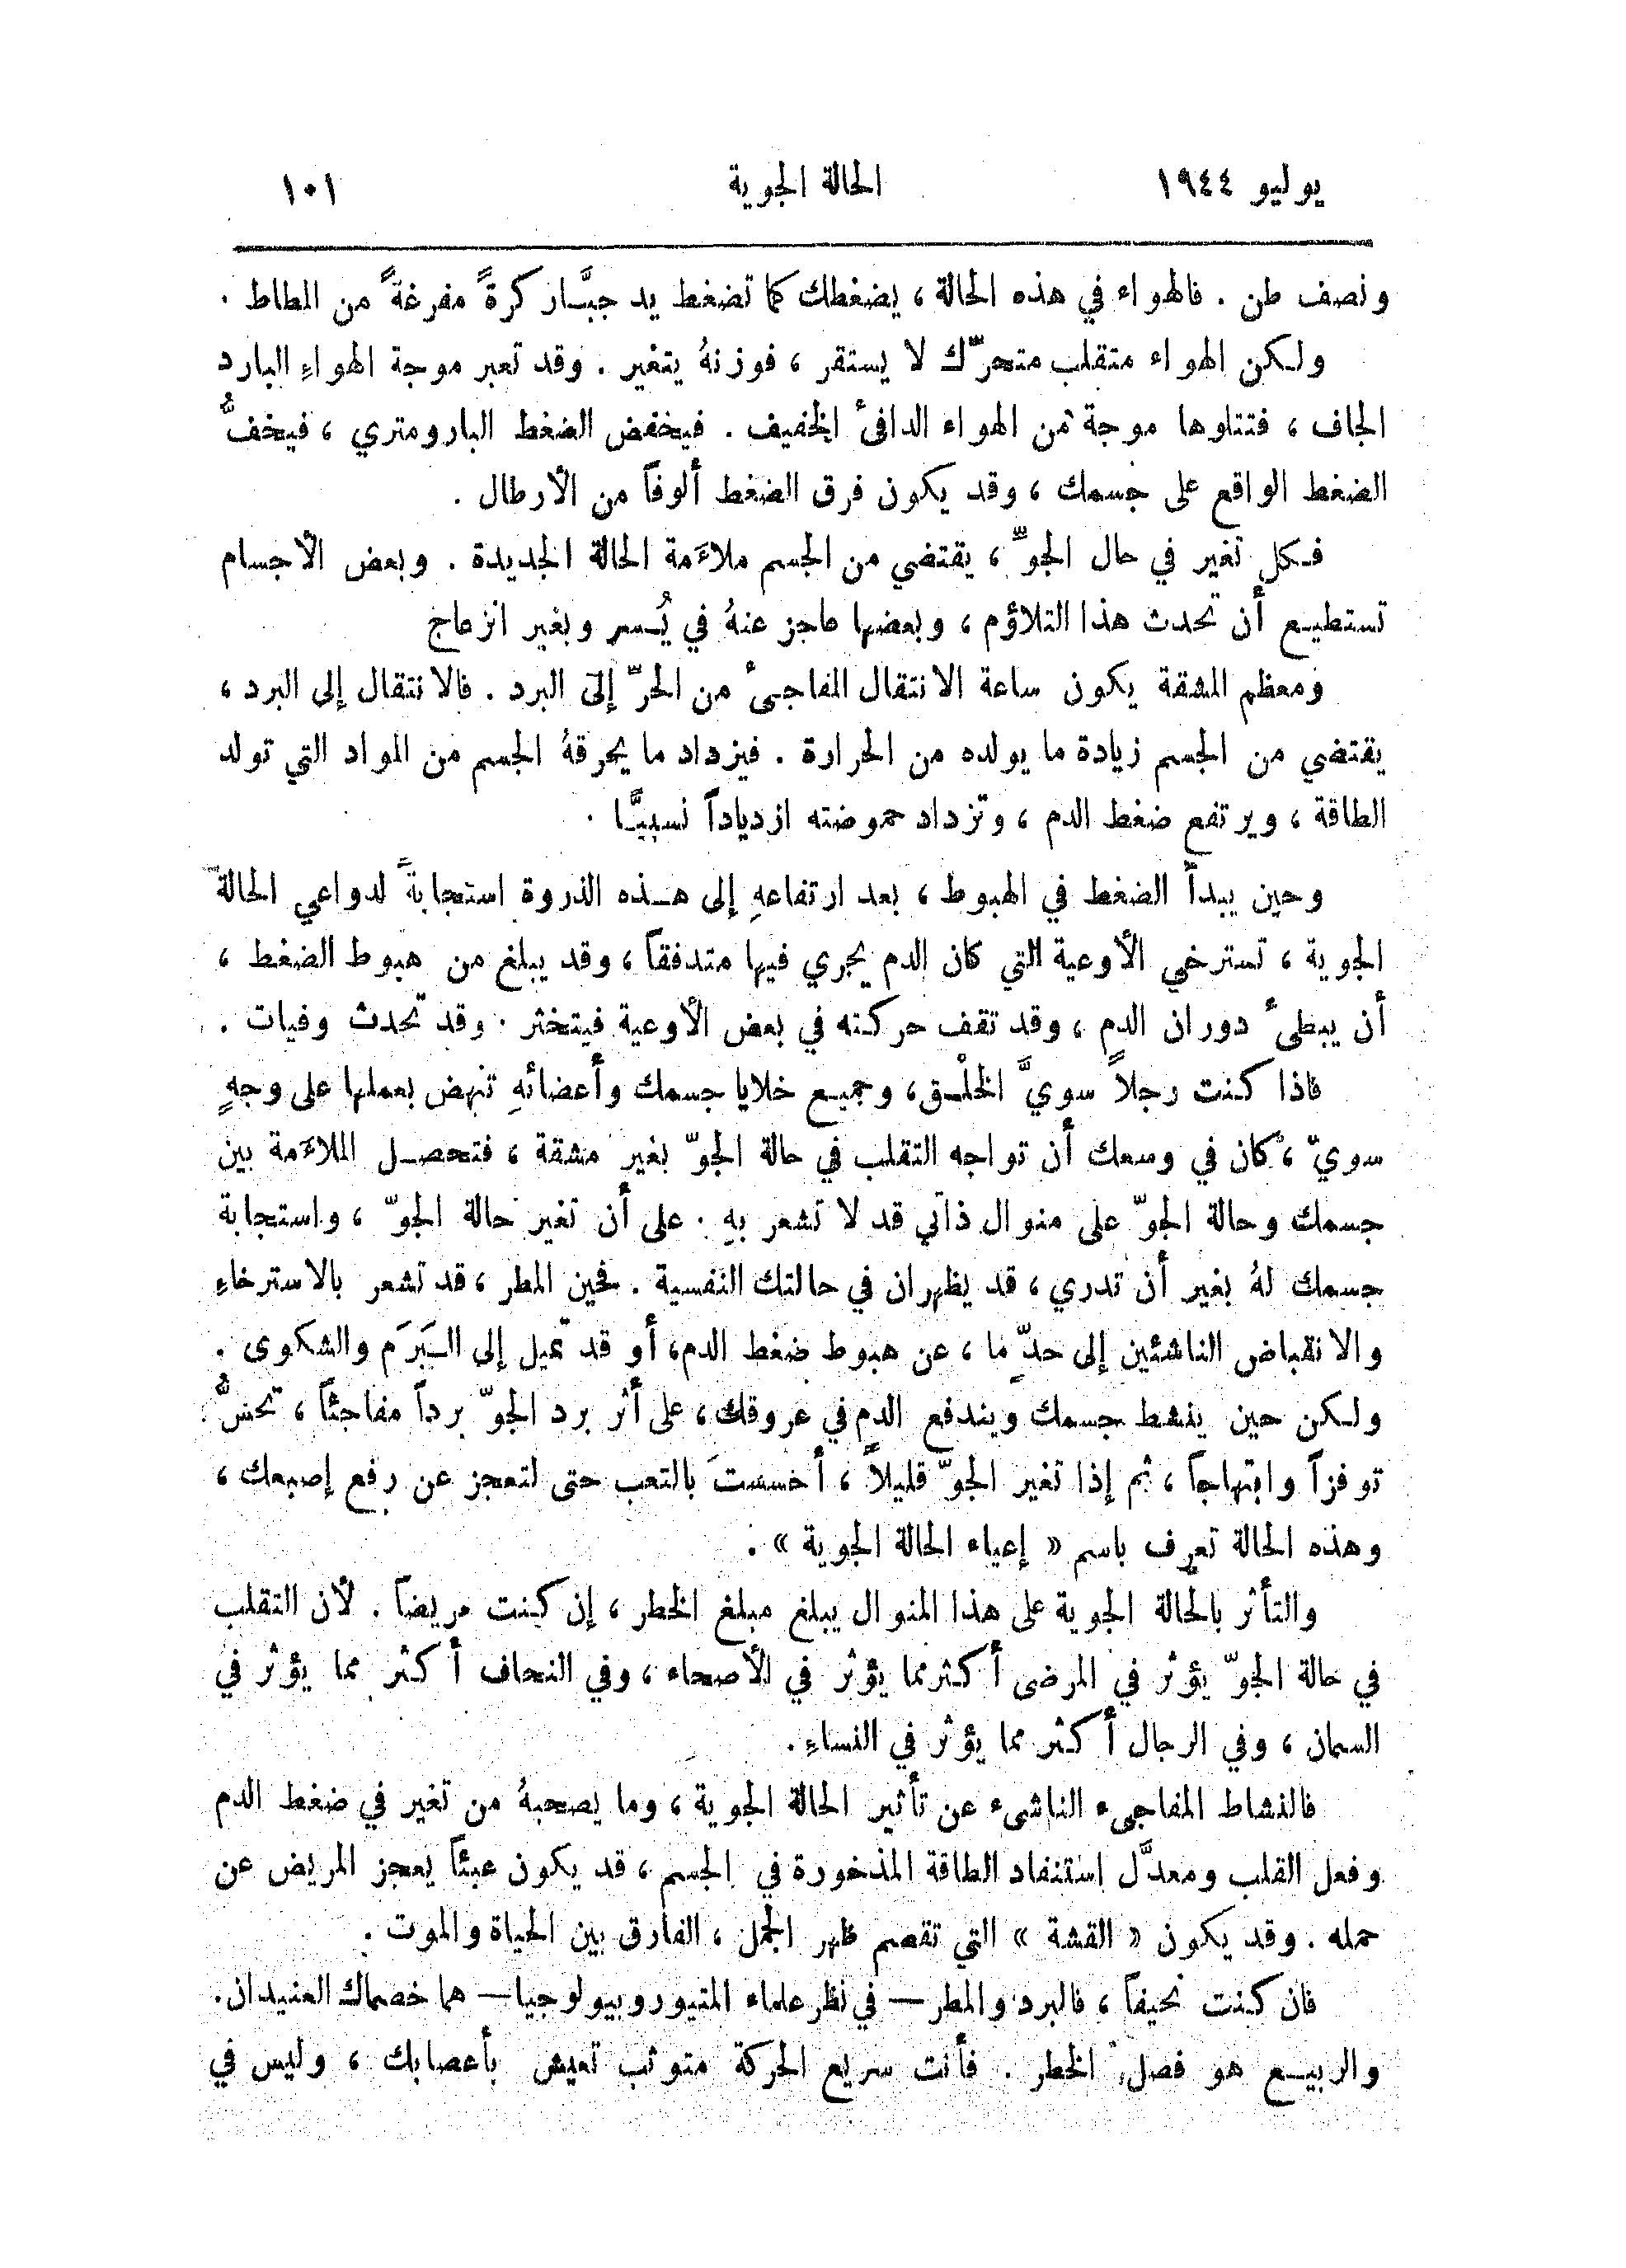 يوليو ١٩٤٤ الحالة الجوية ١٠١
ونصف طن . فالهواء في هذه الحالة ، يضغطك كما تضغط يد جبَّار كرةً مفرغةً من المطاط .
ولكن الهواء متقلب متحرّك لا يستقر ، فوزنهُ يتغير . وقد تعبر موجة الهواءِ البارد
الجاف ، فتتلوها موجة من الهواء الدافئ الخفيف . فيخفض الضغط البارومتري ، فيخفُّ
الضغط الواقع على جسمك ، وقد يكون فرق الضغط ألوفاً من الأرطال .
فكل تغير في حال الجوّ ، يقتضي من الجسم ملاءَمة الحالة الجديدة . وبعض الأجسام
تستطيع أن تحدث هذا التلاؤم ، وبعضها عاجز عنهُ في يُسر وبغير انزعاج
ومعظم المشقة يكون ساعة الانتقال المفاجئ من الحرّ إلى البرد . فالانتقال إلى البرد ،
يقتضي من الجسم زيادة ما يولده من الحرارة . فيزداد ما يحرقهُ الجسم من المواد التي تولد
الطاقة ، ويرتفع ضغط الدم ، وتزداد حموضته ازدياداً نسبيًّا .
وحين يبدأ الضغط في الهبوط ، بعد ارتفاعهِ إلى هذه الذروة استجابةً لدواعي الحالة
الجوية ، تسترخي الأوعية التي كان الدم يجري فيها متدفقاً ، وقد يبلغ من هبوط الضغط ،
أن يبطئ دوران الدم ، وقد تقف حركته في بعض الأوعية فيتخثر . وقد تحدث وفيات .
فاذا كنت رجلاً سويَّ الخلْق ، وجميع خلايا جسمك وأعضائهِ تنهض بعملها على وجهٍ
سويّ ، كان في وسعك أن تواجه التقلب في حالة الجوّ بغير مشقة ، فتحصل الملاءَمة بين
جسمك وحالة الجوّ على منوال ذاتي قد لا تشعر بهِ . على أن تغير حالة الجوّ ، واستجابة
جسمك لهُ بغير أن تدري ، قد يظهران في حالتك النفسية . فحين المطر ، قد تشعر بالاسترخاءِ
والانقباض الناشئين إلى حدّ ما ، عن هبوط ضغط الدم ، أو قد تميل إلى البَرَم والشكوى .
ولكن حين ينشط جسمك ويندفع الدم في عروقك ، على أثر برد الجوّ برداً مفاجئاً ، تحسُّ
توفزاً وابتهاجاً ، ثم إذا تغير الجوّ قليلاً ، أحسستَ بالتعب حتى لتعجز عن رفع إصبعك ،
وهذه الحالة تعرف باسم « إعياء الحالة الجوية » .
والتأثر بالحالة الجوية على هذا المنوال يبلغ مبلغ الخطر ، إن كنت مريضاً . لأن التقلب
في حالة الجوّ يؤثر في المرضى أكثر مما يؤثر في الأصحاء ، وفي النحاف أكثر مما يؤثر في
السمان ، وفي الرجال أكثر مما يؤثر في النساءِ .
فالنشاط المفاجىء الناشىء عن تأثير الحالة الجوية ، وما يصحبهُ من تغير في ضغط الدم
وفعل القلب ومعدَّل استنفاد الطاقة المذخورة في الجسم ، قد يكون عبئاً يعجز المريض عن
حمله . وقد يكون « القشة » التي تقصم ظهر الجمل ، الفارق بين الحياة والموت .
فان كنت نحيفاً ، فالبرد والمطر — في نظر علماء المتيوروبيولوجيا — هما خصماك العنيدان .
والربيع هو فصل الخطر . فأنت سريع الحركة متوثب تعيش بأعصابك ، وليس في